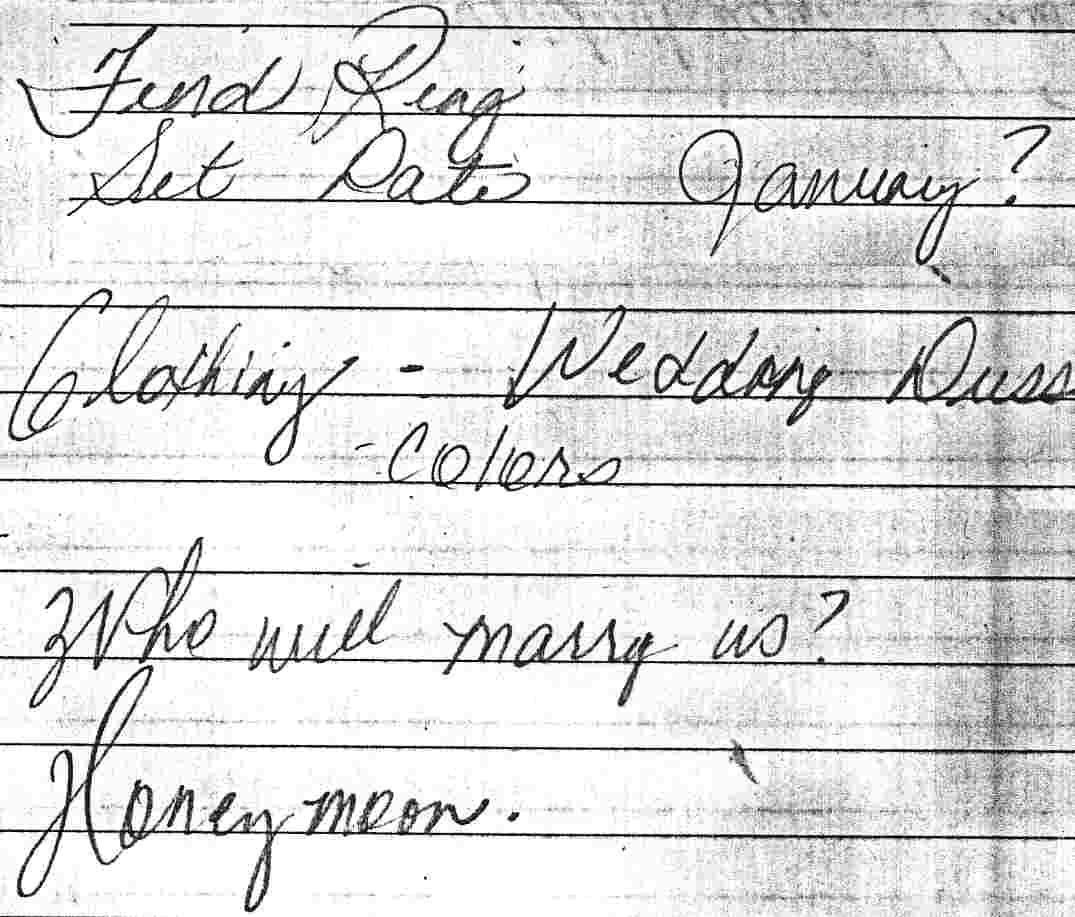 Find Ring
Set Date January?
Clothing - Wedding Dress
- Colors
Who will marry us?
Honeymoon.